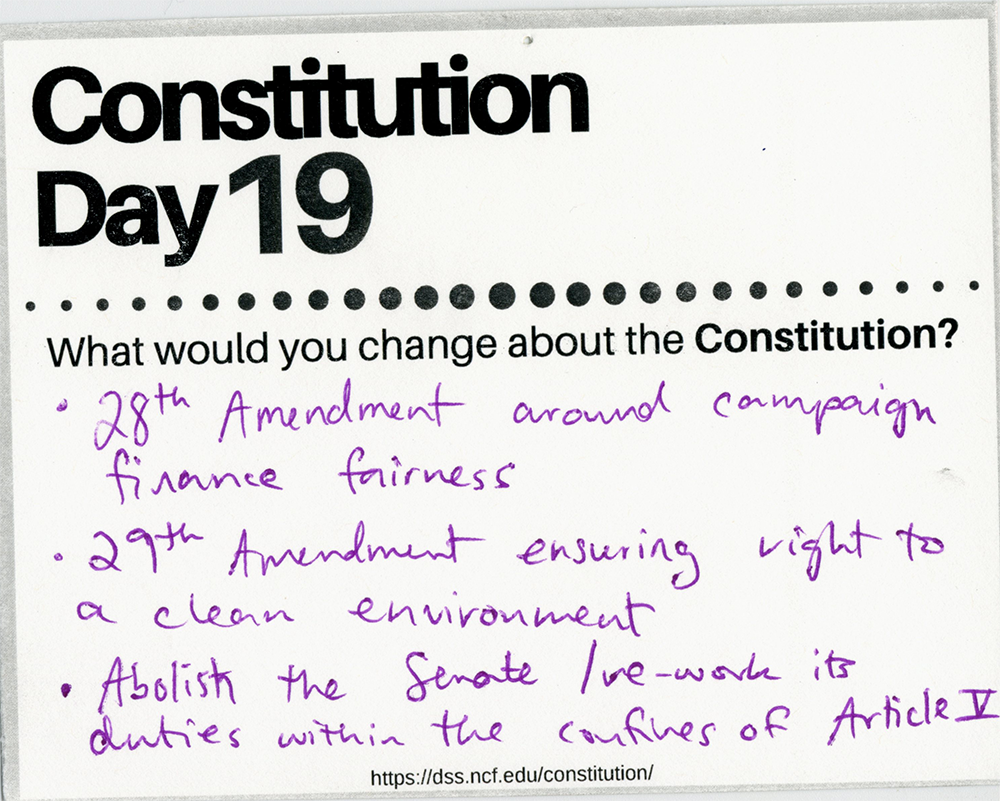 Constitution
Day 19
What would you change about the Constitution?
• 28th Amendment around campaign
finance fairness
• 29th Amendment ensuring right to
a clean environment
• Abolish the Senate /re-work its
duties within the confines of Article V
https://dss.ncf.edu/constitution/